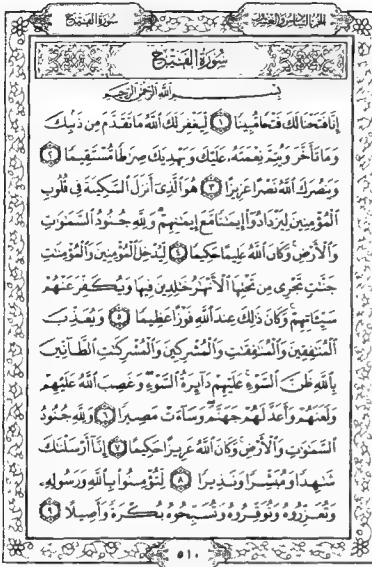 سُورَةُ الفَتْحِ
الجزء السادس والعشرون
سُورَةُ الفَتْحِ
بِسْمِ اللَّهِ الرَّحْمَٰنِ الرَّحِيمِ
إِنَّا فَتَحْنَا لَكَ فَتْحًا مُّبِينًا ١ لِّيَغْفِرَ لَكَ اللَّهُ مَا تَقَدَّمَ مِن ذَنۢبِكَ
وَمَا تَأَخَّرَ وَيُتِمَّ نِعْمَتَهُۥ عَلَيْكَ وَيَهْدِيَكَ صِرَٰطًا مُّسْتَقِيمًا ٢
وَيَنصُرَكَ اللَّهُ نَصْرًا عَزِيزًا ٣ هُوَ الَّذِىٓ أَنزَلَ السَّكِينَةَ فِى قُلُوبِ
الْمُؤْمِنِينَ لِيَزْدَادُوٓا۟ إِيمَٰنًا مَّعَ إِيمَٰنِهِمْ وَلِلَّهِ جُنُودُ السَّمَٰوَٰتِ
وَالْأَرْضِ وَكَانَ اللَّهُ عَلِيمًا حَكِيمًا ٤ لِّيُدْخِلَ الْمُؤْمِنِينَ وَالْمُؤْمِنَٰتِ
جَنَّٰتٍ تَجْرِى مِن تَحْتِهَا الْأَنْهَٰرُ خَٰلِدِينَ فِيهَا وَيُكَفِّرَ عَنْهُمْ
سَيِّـَٔاتِهِمْ وَكَانَ ذَٰلِكَ عِندَ اللَّهِ فَوْزًا عَظِيمًا ٥ وَيُعَذِّبَ
الْمُنَٰفِقِينَ وَالْمُنَٰفِقَٰتِ وَالْمُشْرِكِينَ وَالْمُشْرِكَٰتِ الظَّآنِّينَ
بِاللَّهِ ظَنَّ السَّوْءِ عَلَيْهِمْ دَآئِرَةُ السَّوْءِ وَغَضِبَ اللَّهُ عَلَيْهِمْ
وَلَعَنَهُمْ وَأَعَدَّ لَهُمْ جَهَنَّمَ وَسَآءَتْ مَصِيرًا ٦ وَلِلَّهِ جُنُودُ
السَّمَٰوَٰتِ وَالْأَرْضِ وَكَانَ اللَّهُ عَزِيزًا حَكِيمًا ٧ إِنَّآ أَرْسَلْنَٰكَ
شَٰهِدًا وَمُبَشِّرًا وَنَذِيرًا ٨ لِّتُؤْمِنُوا۟ بِاللَّهِ وَرَسُولِهِۦ
وَتُعَزِّرُوهُ وَتُوَقِّرُوهُ وَتُسَبِّحُوهُ بُكْرَةً وَأَصِيلًا ٩
٥١٠